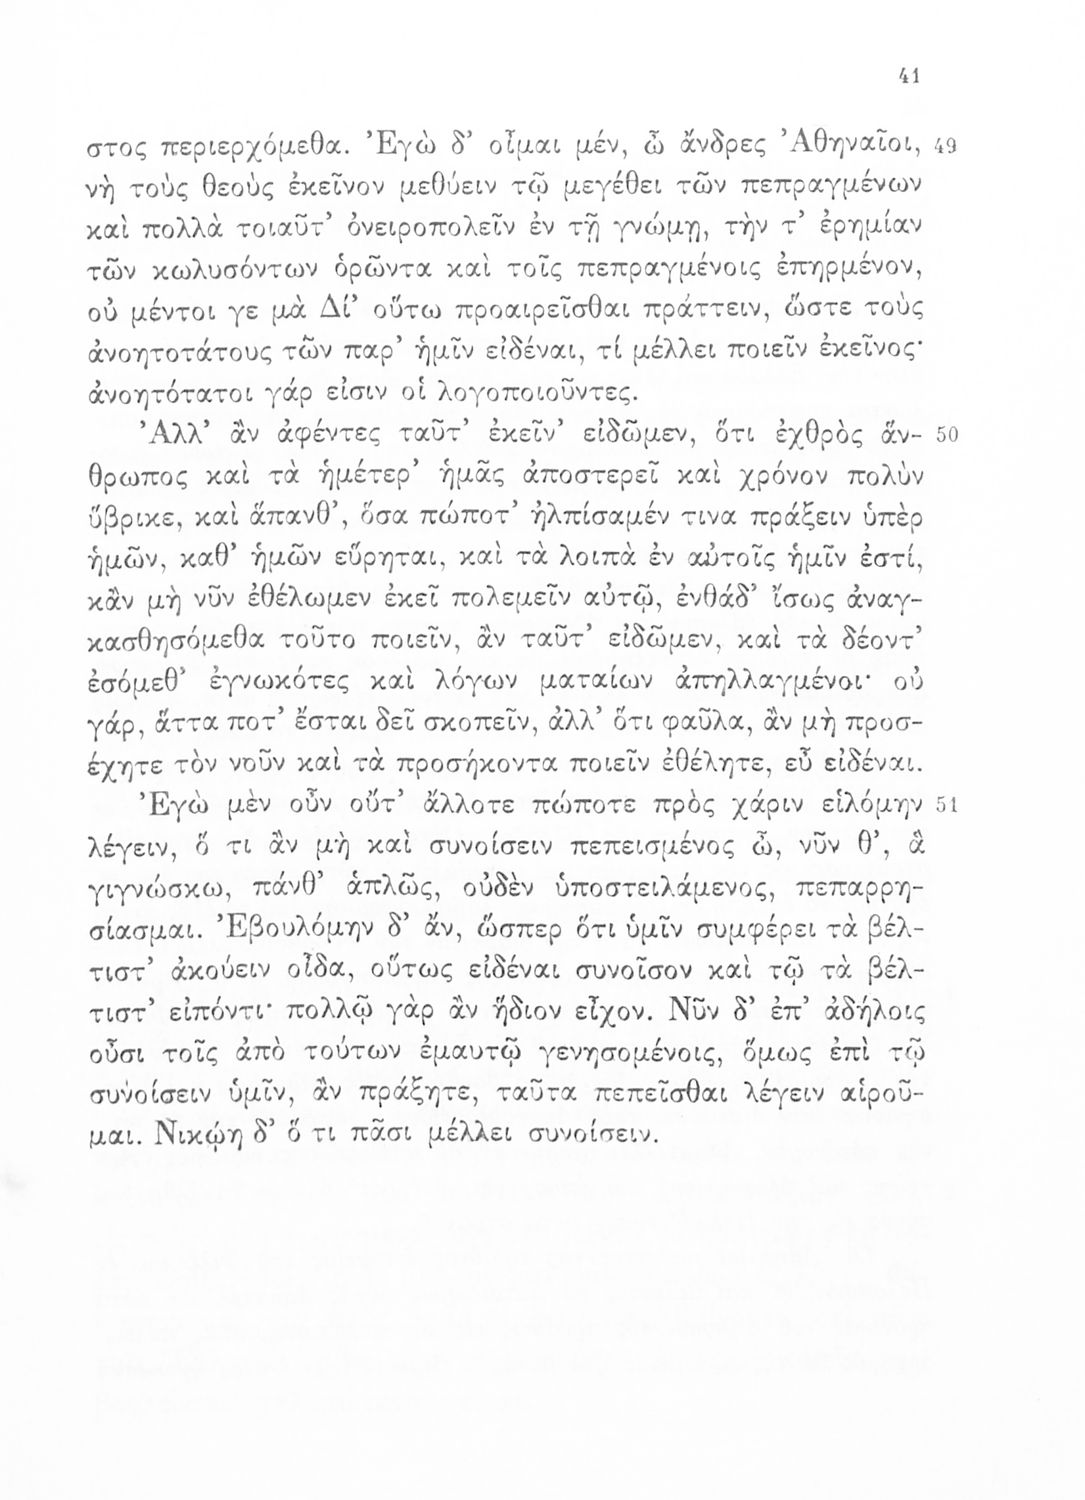 41
στος περιερχόμεθα. Ἐγὼ δ’ οἶμαι μέν, ὦ ἄνδρες Ἀθηναῖοι, 49
νὴ τοὺς θεοὺς ἐκεῖνον μεθύειν τῷ μεγέθει τῶν πεπραγμένων
καὶ πολλὰ τοιαῦτ’ ὀνειροπολεῖν ἐν τῇ γνώμῃ, τὴν τ’ ἐρημίαν
τῶν κωλυσόντων ὁρῶντα καὶ τοῖς πεπραγμένοις ἐπηρμένον,
οὐ μέντοι γε μὰ Δί’ οὕτω προαιρεῖσθαι πράττειν, ὥστε τοὺς
ἀνοητοτάτους τῶν παρ’ ἡμῖν εἰδέναι, τί μέλλει ποιεῖν ἐκεῖνος·
ἀνοητότατοι γάρ εἰσιν οἱ λογοποιοῦντες.
Ἀλλ’ ἂν ἀφέντες ταῦτ’ ἐκεῖν’ εἰδῶμεν, ὅτι ἐχθρὸς ἅν- 50
θρωπος καὶ τὰ ἡμέτερ’ ἡμᾶς ἀποστερεῖ καὶ χρόνον πολὺν
ὕβρικε, καὶ ἅπανθ’, ὅσα πώποτ’ ἠλπίσαμέν τινα πράξειν ὑπὲρ
ἡμῶν, καθ’ ἡμῶν εὕρηται, καὶ τὰ λοιπὰ ἐν αὐτοῖς ἡμῖν ἐστί,
κἂν μὴ νῦν ἐθέλωμεν ἐκεῖ πολεμεῖν αὐτῷ, ἐνθάδ’ ἴσως ἀναγ-
κασθησόμεθα τοῦτο ποιεῖν, ἂν ταῦτ’ εἰδῶμεν, καὶ τὰ δέοντ’
ἐσόμεθ’ ἐγνωκότες καὶ λόγων ματαίων ἀπηλλαγμένοι· οὐ
γάρ, ἅττα ποτ’ ἔσται δεῖ σκοπεῖν, ἀλλ’ ὅτι φαῦλα, ἂν μὴ προσ-
έχητε τὸν νοῦν καὶ τὰ προσήκοντα ποιεῖν ἐθέλητε, εὖ εἰδέναι.
Ἐγὼ μὲν οὖν οὔτ’ ἄλλοτε πώποτε πρὸς χάριν εἱλόμην 51
λέγειν, ὅ τι ἂν μὴ καὶ συνοίσειν πεπεισμένος ὦ, νῦν θ’, ἃ
γιγνώσκω, πάνθ’ ἁπλῶς, οὐδὲν ὑποστειλάμενος, πεπαρρη-
σίασμαι. Ἐβουλόμην δ’ ἄν, ὥσπερ ὅτι ὑμῖν συμφέρει τὰ βέλ-
τιστ’ ἀκούειν οἶδα, οὕτως εἰδέναι συνοῖσον καὶ τῷ τὰ βέλ-
τιστ’ εἰπόντι· πολλῷ γὰρ ἂν ἥδιον εἶχον. Νῦν δ’ ἐπ’ ἀδήλοις
οὖσι τοῖς ἀπὸ τούτων ἐμαυτῷ γενησομένοις, ὅμως ἐπὶ τῷ
συνοίσειν ὑμῖν, ἂν πράξητε, ταῦτα πεπεῖσθαι λέγειν αἱροῦ-
μαι. Νικῴη δ’ ὅ τι πᾶσι μέλλει συνοίσειν.